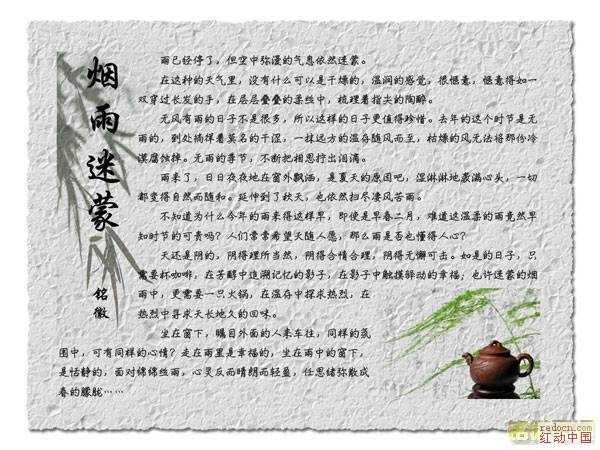 烟雨迷蒙
铭徽
雨已经停了，但空中弥漫的气息依然迷蒙。
在这种的天气里，没有什么可以是干燥的，温润的感觉，很惬意，惬意得如一
双穿过长发的手，在层层叠叠的柔丝中，梳理着指尖的陶醉。
无风有雨的日子不是很多，所以这样的日子更值得珍惜。去年的这个时节是无
雨的，到处徜徉着莫名的干涩，一抹远方的温存随风而至，枯燥的风无法将那份冷
漠腐蚀掉。无雨的季节，不断把相思拧出泪滴。
雨来了，日日夜夜地在窗外飘洒，是夏天的原因吧，湿淋淋地袭满心头，一切
都变得自然而随和。延伸到了秋天，也依然扫尽凄风苦雨。
不知道为什么今年的雨来得这样早，即使是早春二月，难道这温柔的雨竟然早
知时节的可贵吗？人们常常希望天随人愿，那么雨是否也懂得人心？
天还是阴的，阴得理所当然，阴得合情合理，阴得无懈可击。如是的日子，只
需要杯咖啡，在芳醇中追溯记忆的影子，在影子中触摸骚动的幸福；也许迷蒙的烟
雨中，更需要一只火锅，在温存中探求热烈，在
热烈中寻求天长地久的回味。
坐在窗下，瞩目外面的人来车往，同样的氛
围中，可有同样的心情？走在雨里是幸福的，坐在雨中的窗下，
是恬静的，面对绵绵丝雨，心灵反而晴朗而轻盈，任思绪弥散成
春的朦胧……
redocn.com
红动中国